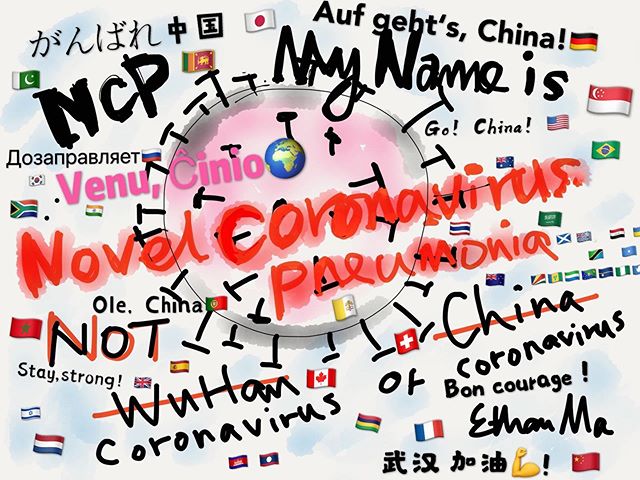 がんばれ中国
Auf geht's, China!
NCP
My Name is
Go! China!
Дозаправляет
Venu, Ĉinio
Novel coronavirus
pneumonia
Ole. China!
NOT
China
coronavirus
Stay,strong!
or
Bon courage !
WuHan
coronavirus
Ethan Ma
武汉加油!